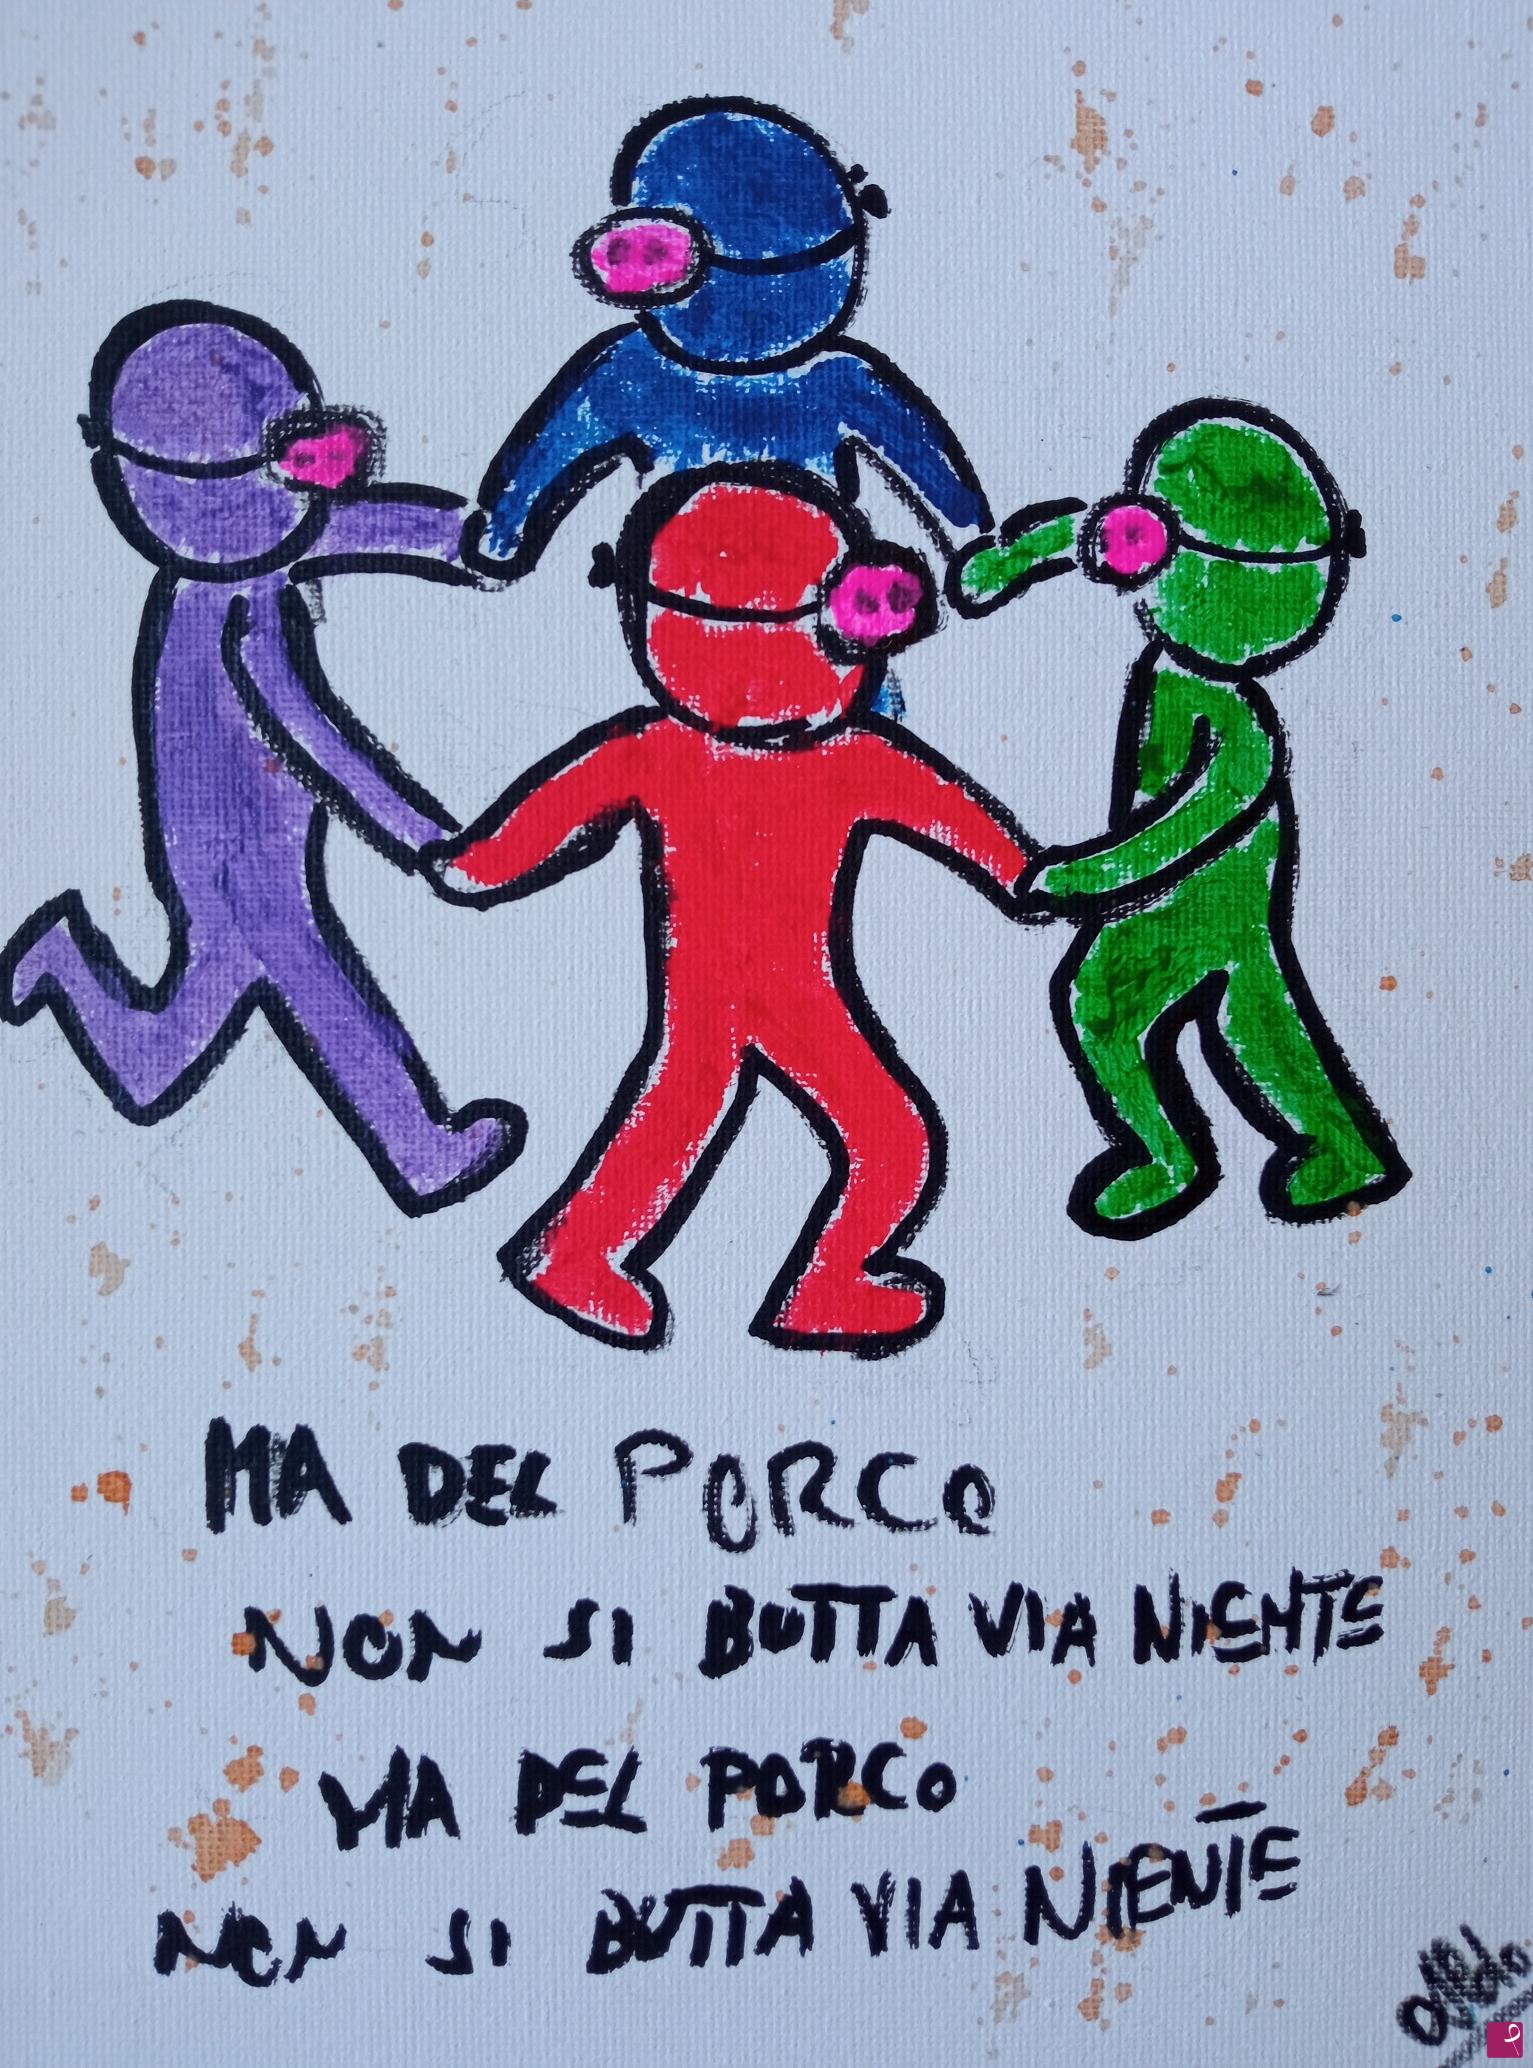 MA DEL PORCO
NON SI BUTTA VIA NIENTE
MA DEL PORCO
NON SI BUTTA VIA NIENTE